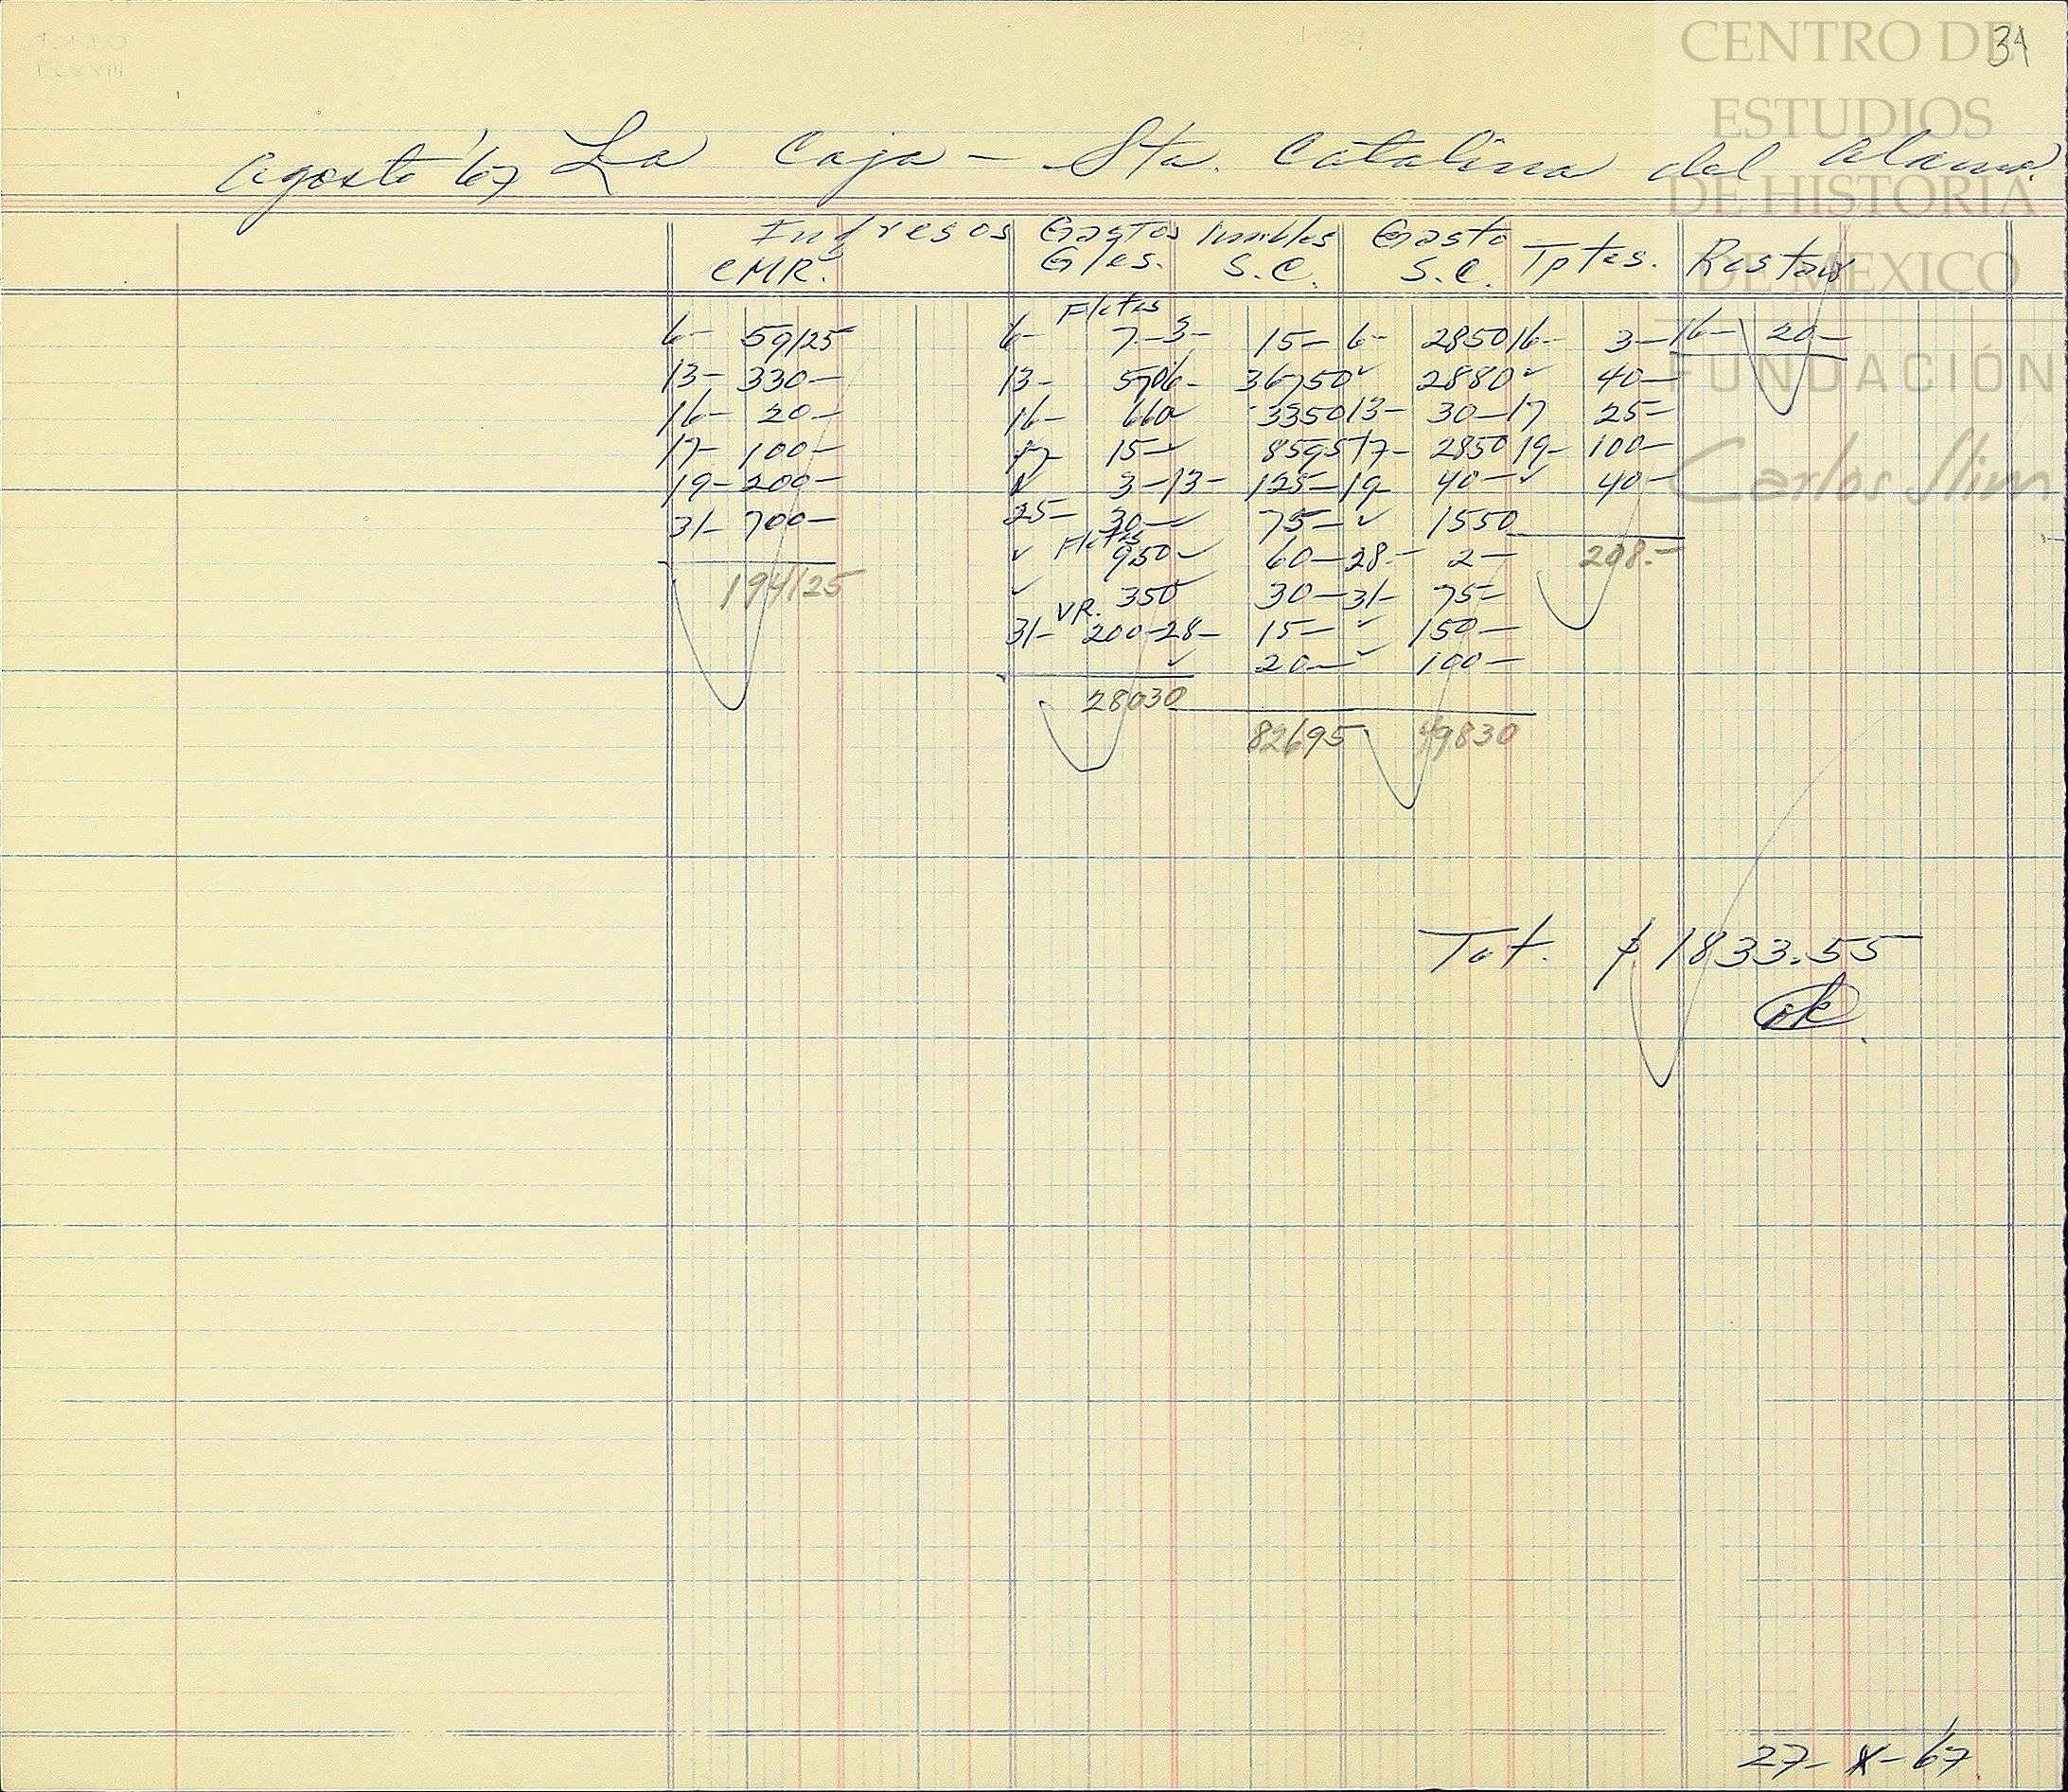 34
Agosto '67 La Caja - Sta. Catalina del Alamo.
Ingresos Gastos Inmbles Gasto Tptes. Restau
CMR. Gles. S.C. S.C.
Fletes
6- 59125 6- 7- 3- 15- 6- 2850 16- 3- 16- 20-
13- 330- 13- 5706- 36750 ✓ 2880 ✓ 40-
16- 20- 16- 660 ✓ 3350 13- 30- 17 25-
17- 100- 17- 15- ✓ 8595 17- 2850 19- 100-
19- 200- ✓ 3- 13- 125- 19- 40- ✓ 40-
31- 700- 25- 30- ✓ 75- ✓ 1550
✓ Fletes 950 ✓ 60- 28- 2- 208.-
194125 ✓ 350 30- 31- 75-
VR.
31- 200- 28- 15- ✓ 150-
✓ 20- ✓ 100-
28030
82695 49830
Tot. $1833.55
ok
27-X-67
CENTRO DE
ESTUDIOS
DE HISTORIA
DE MEXICO
FUNDACIÓN
Carlos Slim